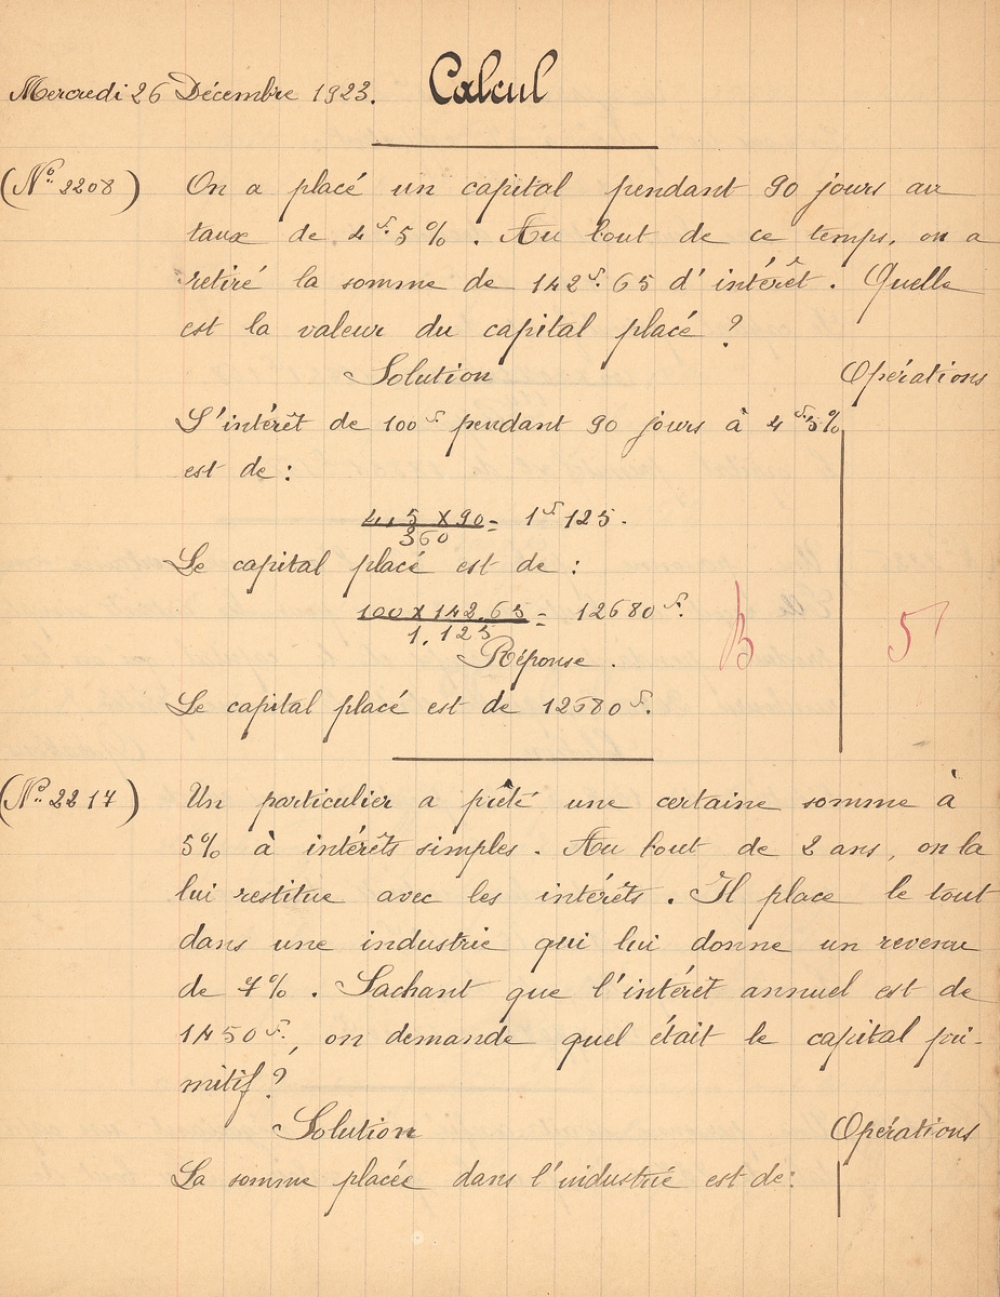 Mercredi 26 Décembre 1923. Calcul
(No. 2208) On a placé un capital pendant 90 jours au
taux de 4f.5%. Au bout de ce temps, on a
retiré la somme de 142f.65 d'intérêt. Quelle
est la valeur du capital placé ?
Solution Opérations
L'intérêt de 100f pendant 90 jours à 4f.5%
est de :
4,5 x 90 = 1f125.
360
Le capital placé est de :
100 x 142,65 = 12680f.
1,125
B 5
Réponse.
Le capital placé est de 12680f.
(No. 2217) Un particulier a prêté une certaine somme à
5% à intérêts simples. Au bout de 2 ans, on la
lui restitue avec les intérêts. Il place le tout
dans une industrie qui lui donne un revenu
de 7%. Sachant que l'intérêt annuel est de
1450f., on demande quel était le capital pri-
mitif ?
Solution Opérations
La somme placée dans l'industrie est de: